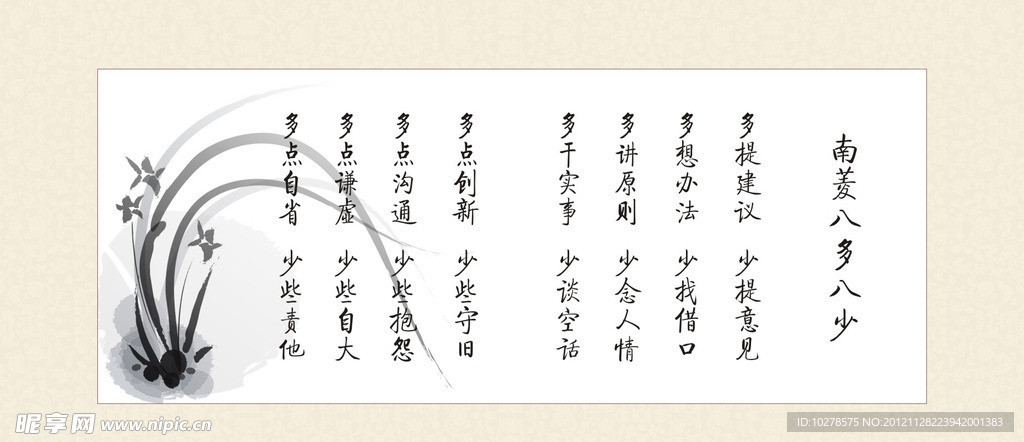 南菱八多八少
多提建议 少提意见
多想办法 少找借口
多讲原则 少念人情
多干实事 少谈空话
多点创新 少些守旧
多点沟通 少些抱怨
多点谦虚 少些自大
多点自省 少些责他
昵享网 www.nipic.cn
ID:10278575 NO:20121128223942001383